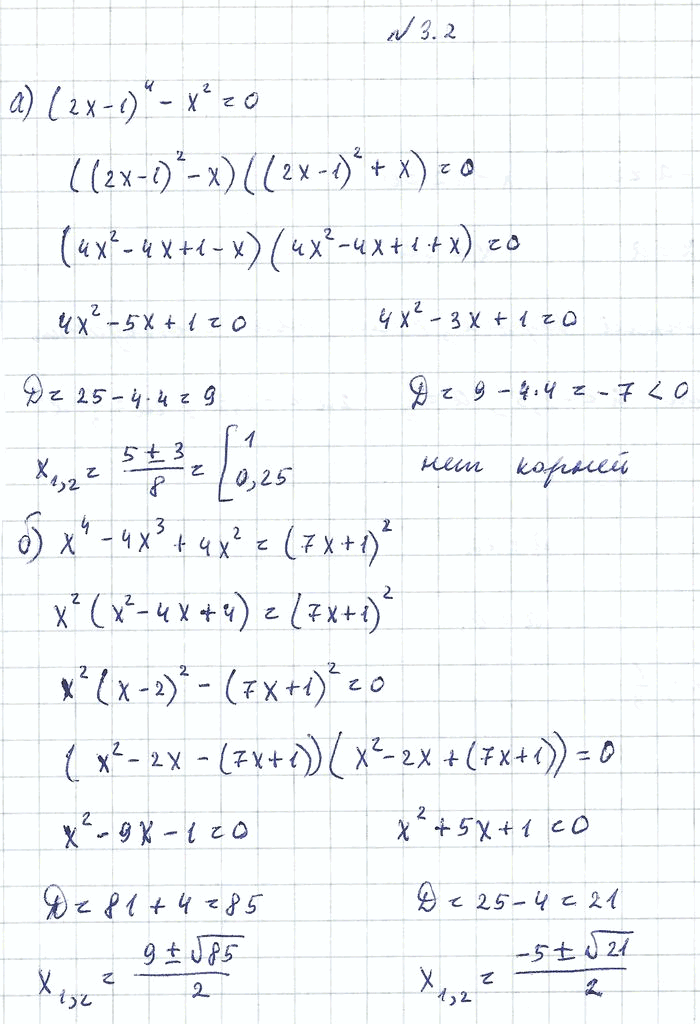 № 3.2
а) (2x-1)⁴ - x² = 0
((2x-1)² - x)((2x-1)² + x) = 0
(4x² - 4x + 1 - x)(4x² - 4x + 1 + x) = 0
4x² - 5x + 1 = 0 4x² - 3x + 1 = 0
D = 25 - 4·4 = 9 D = 9 - 4·4 = -7 < 0
x₁,₂ = (5 ± 3)/8 = [1 0,25 нет корней
б) x⁴ - 4x³ + 4x² = (7x+1)²
x²(x² - 4x + 4) = (7x+1)²
x²(x-2)² - (7x+1)² = 0
(x² - 2x - (7x+1))(x² - 2x + (7x+1)) = 0
x² - 9x - 1 = 0 x² + 5x + 1 = 0
D = 81 + 4 = 85 D = 25 - 4 = 21
x₁,₂ = (9 ± √85)/2 x₁,₂ = (-5 ± √21)/2